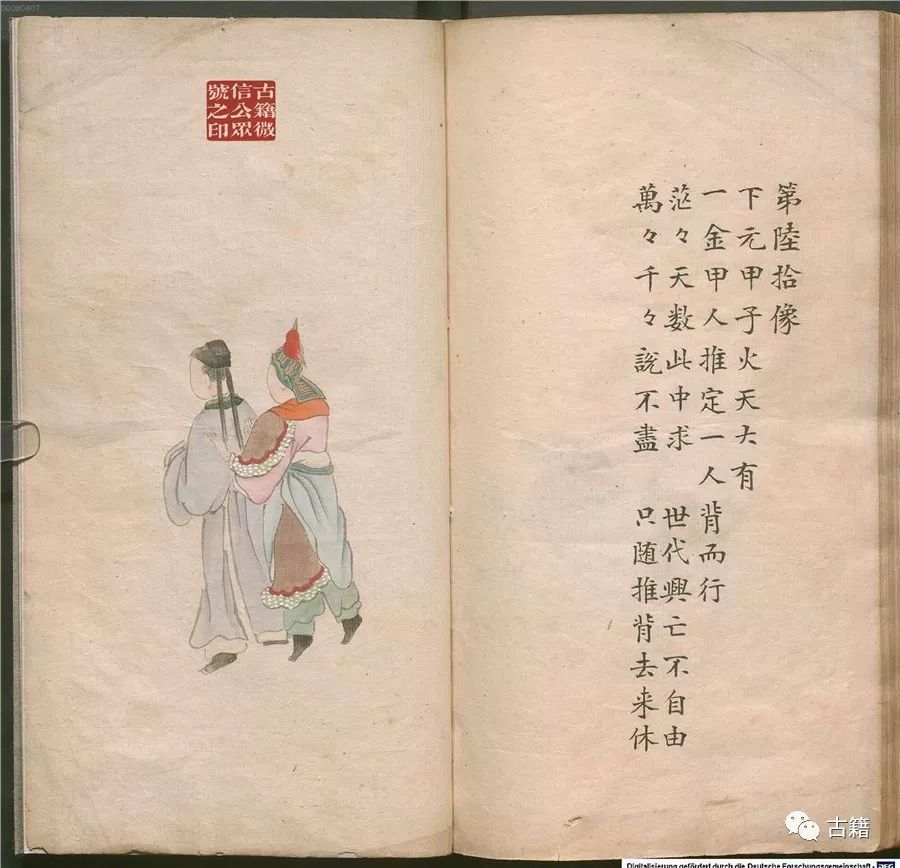 第陸拾像
下元甲子火天大有
一金甲人推定一人背而行
茫々天数此中求 世代興亡不自由
萬々千々說不盡 只随推背去来休
古籍微
信公眾
號之印
古籍
00080607
Digitalisierung gefördert durch die Deutsche Forschungsgemeinschaft - DFG